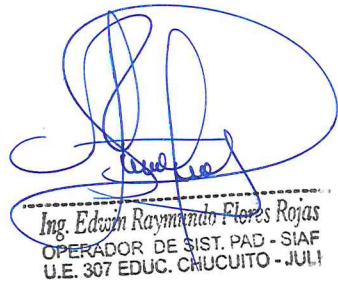 Ing. Edwin Raymundo Flores Rojas
OPERADOR DE SIST. PAD - SIAF
U.E. 307 EDUC. CHUCUITO - JULI